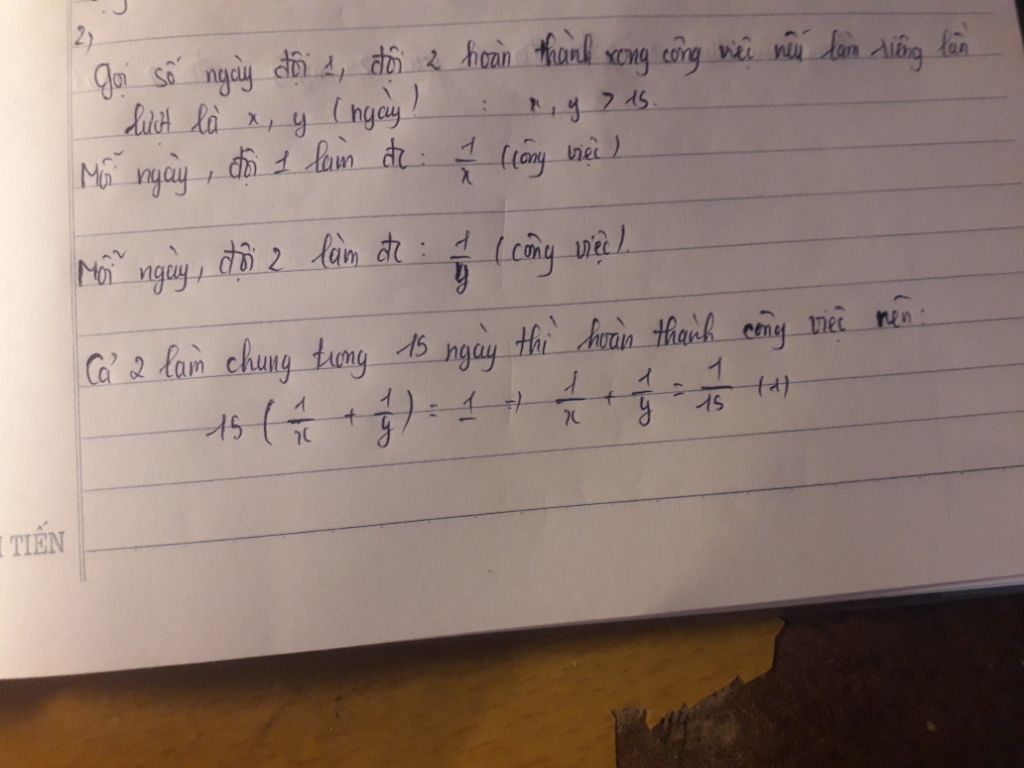 2)
Gọi số ngày đội 1, đội 2 hoàn thành xong công việc nếu làm riêng lần
lượt là x, y (ngày) : x, y > 15.
Mỗi ngày, đội 1 làm đc : 1/x (công việc)
Mỗi ngày, đội 2 làm đc : 1/y (công việc).
Cả 2 làm chung trong 15 ngày thì hoàn thành công việc nên:
15 (1/x + 1/y) = 1 => 1/x + 1/y = 1/15 (1)
TIẾN